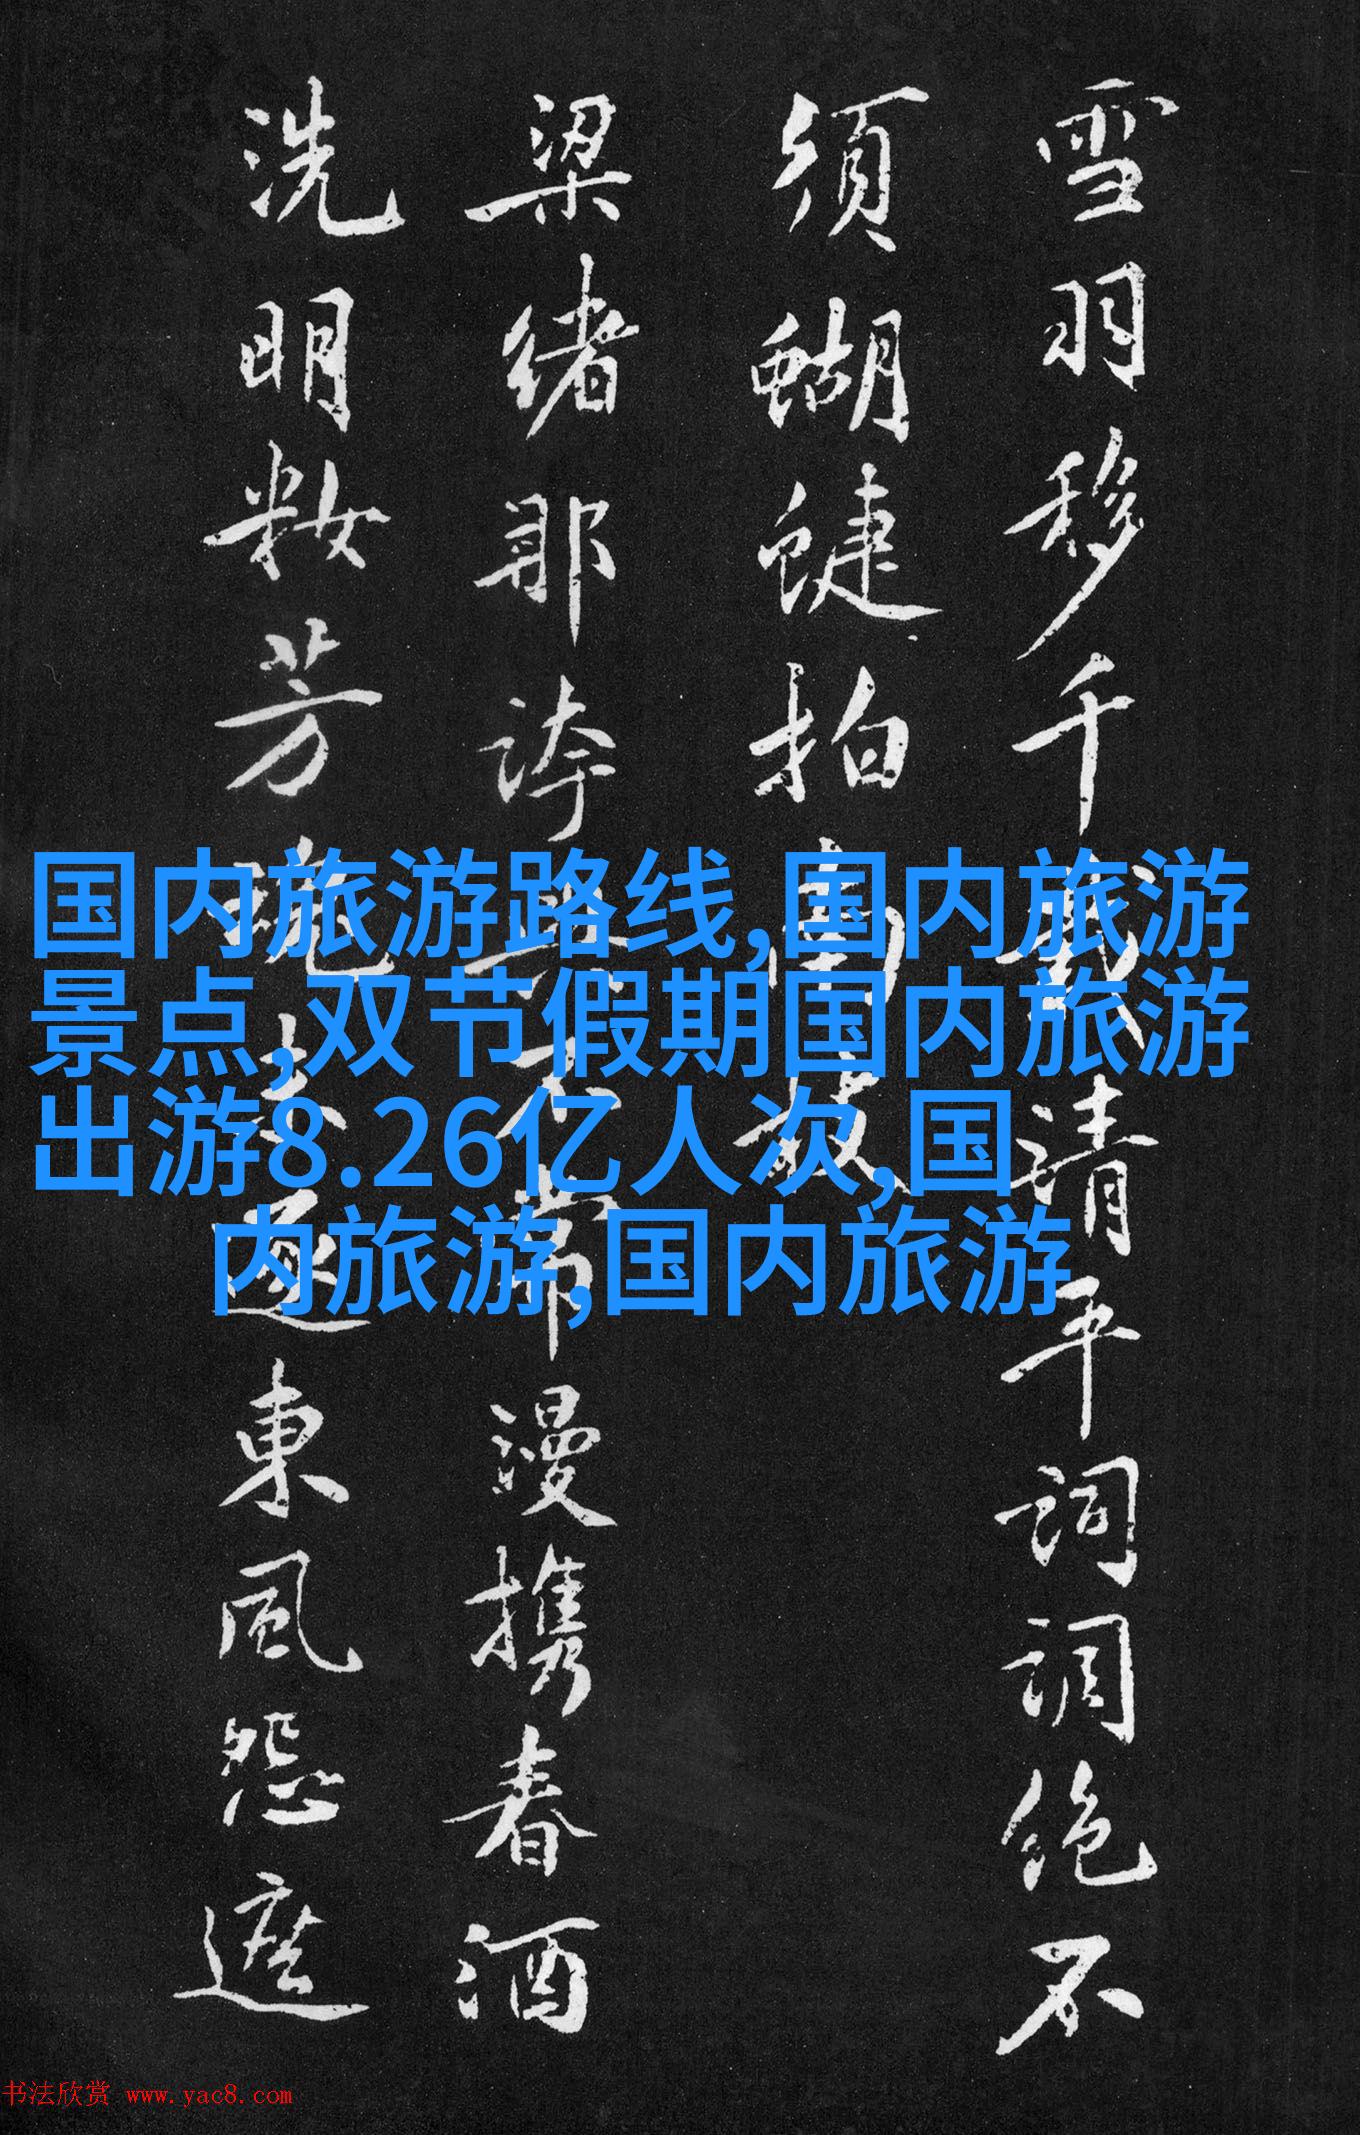 雪羽移千清平詞調絕不
須蝴蜨拍南
梁緒那誇常漫攜春酒
洗明籹芳東風怨遮
国内旅游路线,国内旅游
景点,双节假期国内旅游
出游8.26亿人次,国
内旅游,国内旅游
书法欣赏 www.yac8.com